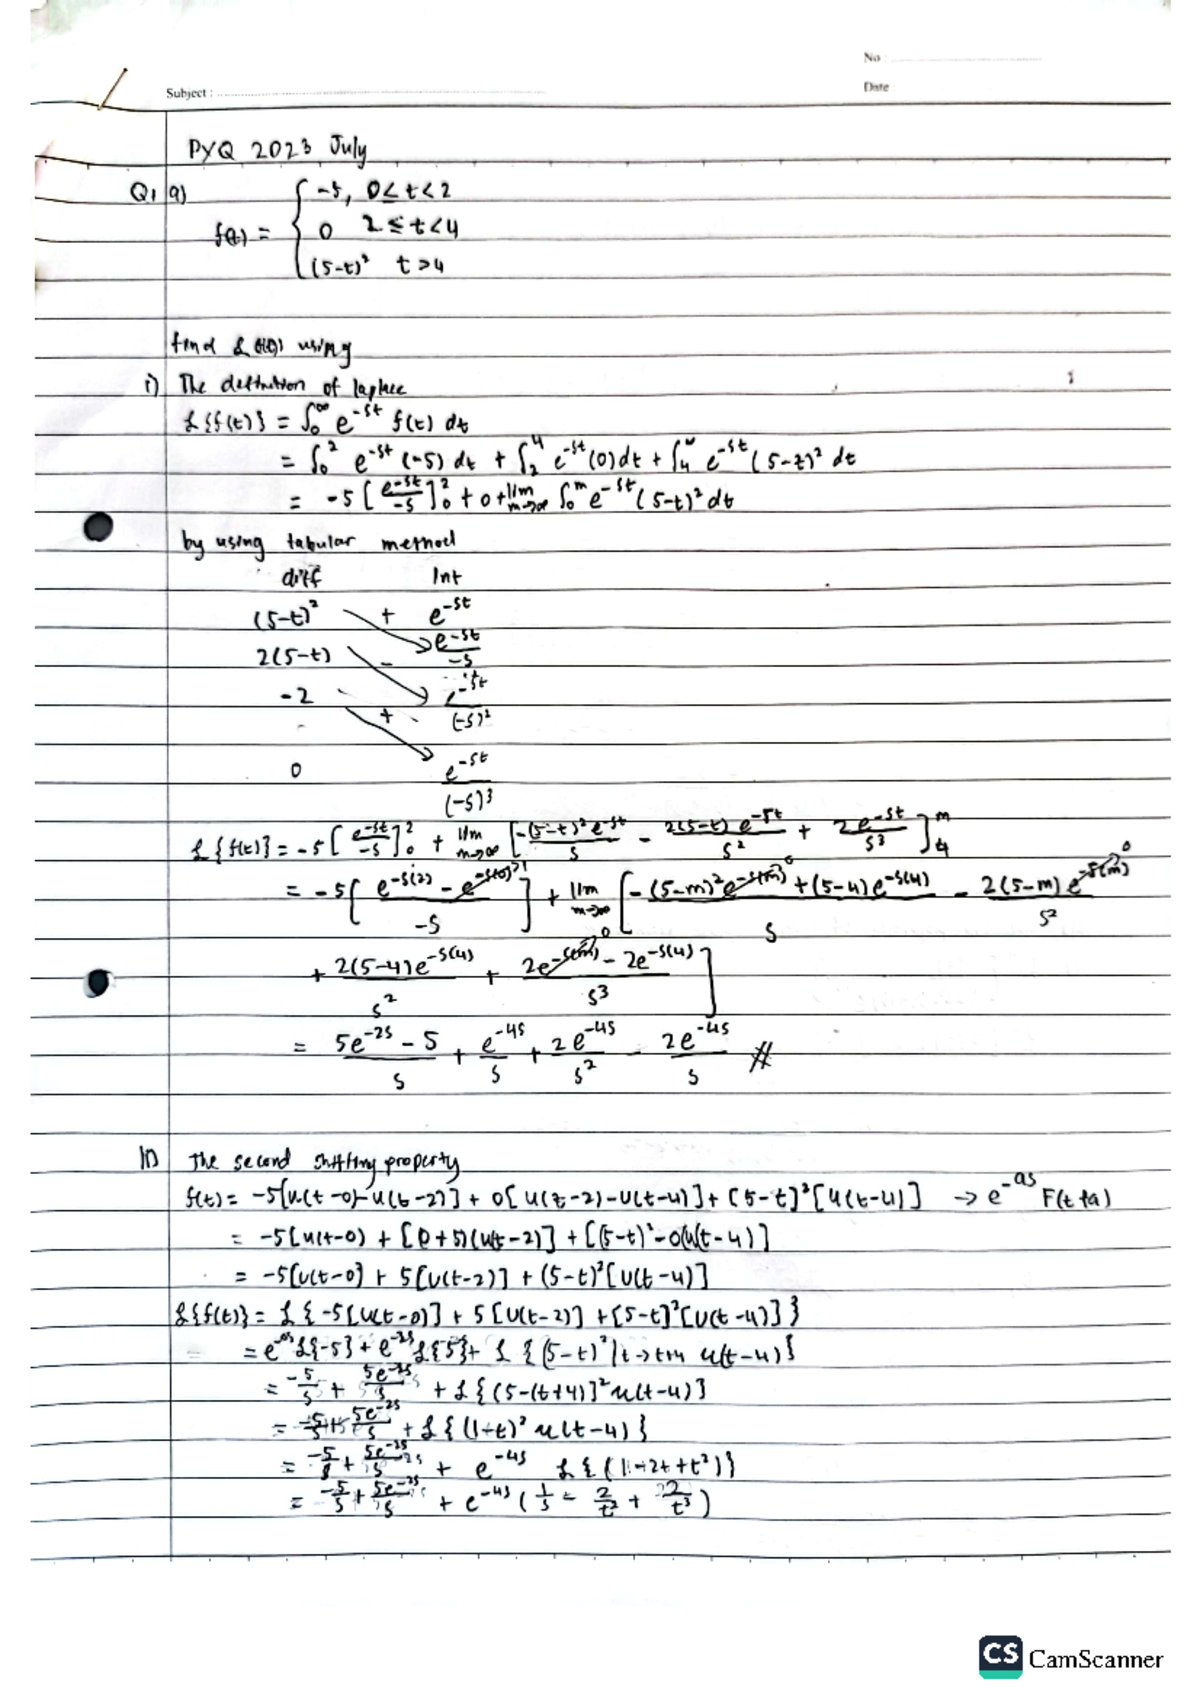 No
Subject :
Date
PYQ 2023 July
Q1 a)
f(t) = { -5, 0≤t<2
0 2≤t<4
(5-t)² t>4
find £ {f(t)} using
i) The definition of laplace
£{f(t)} = ∫₀^∞ e^-st f(t) dt
= ∫₀² e^-st (-5) dt + ∫₂⁴ e^-st (0)dt + ∫₄^∞ e^-st (5-t)² dt
= -5 [e^-st/-s]₀² + 0 + lim m→∞ ∫₀^m e^-st (5-t)² dt
by using tabular method
diff Int
(5-t)² + e^-st
2(5-t) - e^-st/-s
-2 + e^-st/(-s)²
0 e^-st/(-s)³
£{f(t)} = -5[e^-st/-s]₀² + lim m→∞ [-(5-t)²e^-st/s - 2(5-t)e^-st/s² + 2e^-st/s³]₄^m
= -5[(e^-s(2) - e^-s(0))/-s] + lim m→∞ [(-(5-m)²e^-s(m) + (5-4)e^-s(4))/s - 2(5-m)e^-s(m)/s²
+ 2(5-4)e^-s(4)/s² + (2e^-s(m) - 2e^-s(4))/s³]
= (5e^-2s - 5)/s + e^-4s/s + 2e^-4s/s² - 2e^-4s/s #
ii) The second shifting property
f(t) = -5[u(t-0)-u(t-2)] + 0[u(t-2)-u(t-4)] + [5-t]²[u(t-4)] → e^-as F(t+a)
= -5[u(t-0) + [0+5](u(t-2)] + [(5-t)²-0(u(t-4)]
= -5[u(t-0] + 5[u(t-2)] + (5-t)²[u(t-4]
£{f(t)} = £{-5[u(t-0)] + 5[u(t-2)] + [5-t]²[u(t-4)]}
= e^-0s £{-5} + e^-2s £{5} + £{(5-t)²|t→t+4 u(t-4)}
= -5/s + 5e^-2s/s + £{(5-(t+4)]² u(t-4)}
= -5/s + 5e^-2s/s + £{(1-t)² u(t-4)}
= -5/s + 5e^-2s/s + e^-4s £{(1-2t+t²)}
= -5/s + 5e^-2s/s + e^-4s (1/s - 2/t² + 2/t³)
CS CamScanner